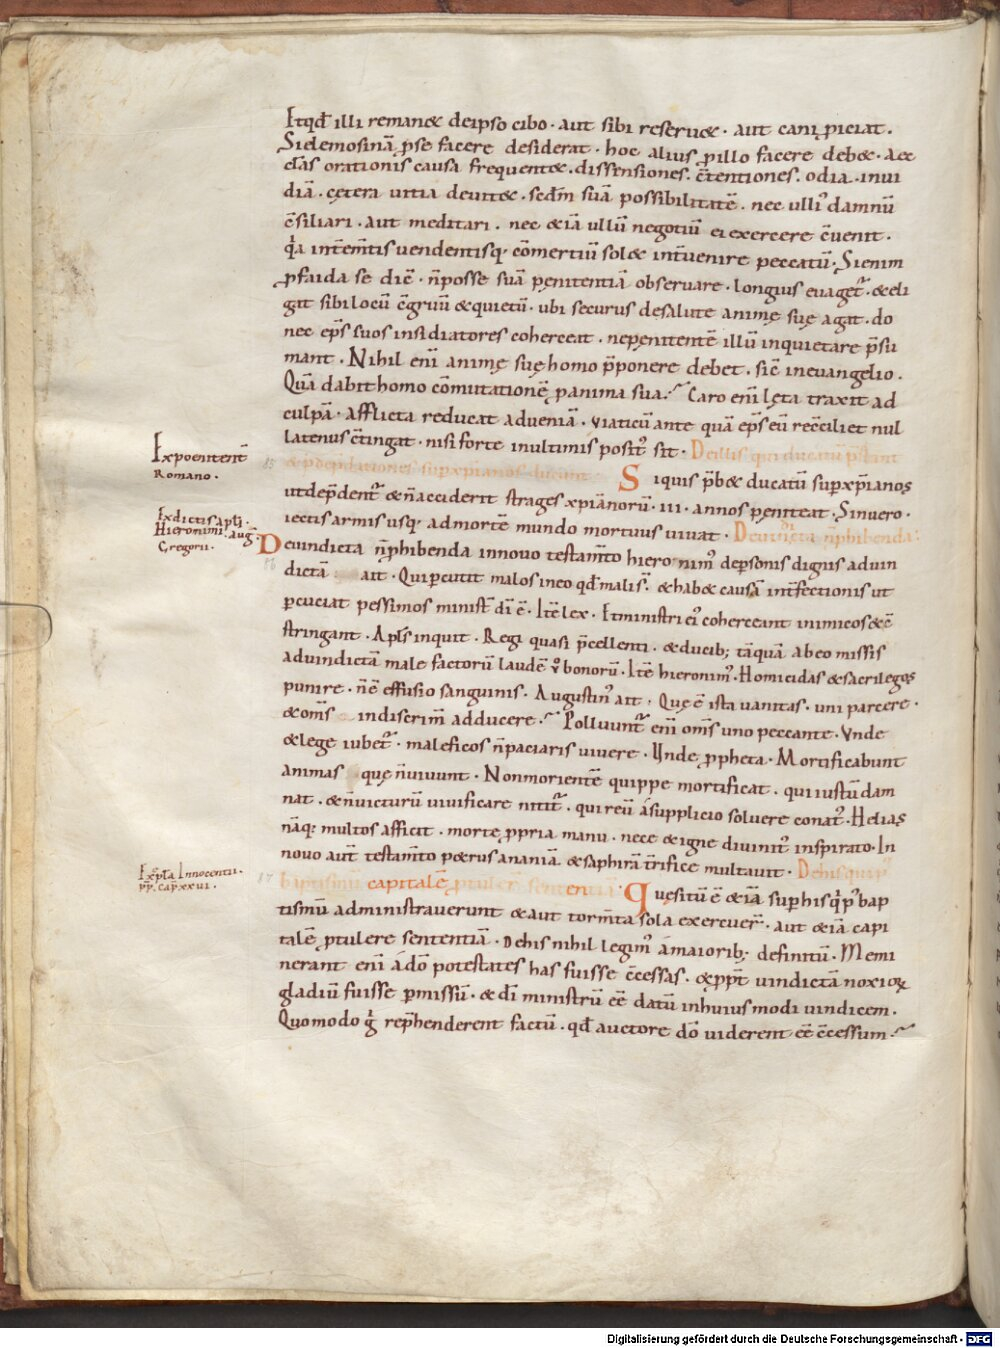 Etqd̄ illi remanet deipso cibo · aut sibi reseruet · aut cani p̱iciat .
Sielemosinā p̱se facere desiderat · hoc alius p̱illo facere debet · aec
clas orationis causa frequentet · dissensiones · c̄tentiones · odia · inui
diā · cętera uitia deuitet · sedm̄ suā possibilitatē · nec ulliꝰ damnū
c̄siliari · aut meditari · nec etiā ullū negotiū ei exercere c̄uenit ·
qͥa int̄em̄tis uendentisq· cōmertiū solet int̄uenire peccatū · Sienim
p̱faida se dic̄ · n̄posse suā penitentiā obseruare · longius euaget᷑ · & eli
gat sibi locū c̄gruū & quietū · ubi securus desalute animę suę agat · do
nec ep̄s suos insidiatores coherceat · nepenitentē illū inquietare p̄su
mant · Nihil enī animę suę homo p̄ponere debet · sic̄ ineuangelio .
Quā dabit homo cōmutationē p̱anima sua · Caro enī lęta traxit ad
culpā · afflicta reducat adueniā · Viaticū ante quā ep̄s eū rec̄ciliet nul
latenus c̄tingat · nisi forte inultimis positꝰ sit · Deillis qui ducatū p̄stant
Expoenitenī
Romano ·
85
S iquis p̄bet ducatū sup̱xp̄ianos
utdep̄dent᷑ & n̄acciderit strages xp̄ianorū · III · annos pęniteat · Sinuero ·
iectis armis usq· admortē mundo mortuus uiuat · Deuindicta n̄p̱hibenda ·
Exdictis apl̄i ·
Hieronimi · auḡ ·
Gregorii ·
86
Deuindicta n̄p̱hibenda innouo testam̄to hieronimꝰ dep̱sonis dignis aduin
dictā ait · Quip̱cutit malos ineo qd̄ malis · & habet causā int̄fectionis ut
p̱cuciat pessimos minist̄ dī ē · Itē lex · Etministri eiꝰ coherceant inimicos & c̄
stringant · Apl̄s inquit · Regi quasi p̄cellenti · & ducib; tāquā abeo missis
aduindictā male factorū laudē ů bonorū · Itē hieronimꝰ · Homicidas & sacrilegos
punire · n̄ē effusio sanguinis · Augustinꝰ ait · Quę ē ista uanitas · uni parcere ·
& oms̄ indiscrim̄ adducere · Polluunt᷑ enī oms̄ uno peccante · Vnde
& lege iubet᷑ · maleficos n̄paciaris uiuere · Unde p̱pheta · Mortificabunt
animas quę n̄uiuunt · Nonmorientē quippe mortificat · qui iustū dam
nat · & n̄uicturū uiuificare nitit᷑ · qui reū ásupplicio soluere conatꝰ · Helias
nāq· multos afficit · morte p̱pria manu · nece & igne diuinitꝰ inspirato · In
nouo aut̄ testam̄to petrus ananiā & saphirā t̄rifice multauit · Dehisquip̱ꝰ
Ex ep̄la Innocentii ·
pp̄ · cap · xxui ·
87
baptismū capitalē p̱tulerē sententiā · Quęsitū ē & iā sup̱his qͥ pꝰ bap
tismū administrauerunt & aut torm̄ta sola exercueř · aut etiā capi
talē p̱tulere sententiā · Dehis nihil legimꝰ ámaiorib; definitū · Memi
nerant enī ádō potestates has fuisse c̄cessas · & p̱pt̄ uindictā noxioꝝ
gladiū fuisse p̱missū · & dī ministrū eē datū inhuius modi uindicem ·
Quomodo gͥ rep̱henderent factū · qd̄ auctore dō uiderent eē c̄cessum ·
Digitalisierung gefördert durch die Deutsche Forschungsgemeinschaft - DFG